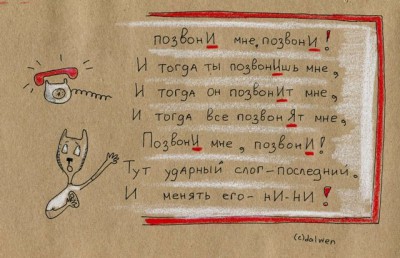 позвонИ мне, позвонИ!
И тогда ты позвонИшь мне,
И тогда он позвонИт мне,
И тогда все позвонЯт мне,
ПозвонИ мне, позвонИ!
Тут ударный слог-последний.
И менять его-нИ-нИ!
(c)dalwen